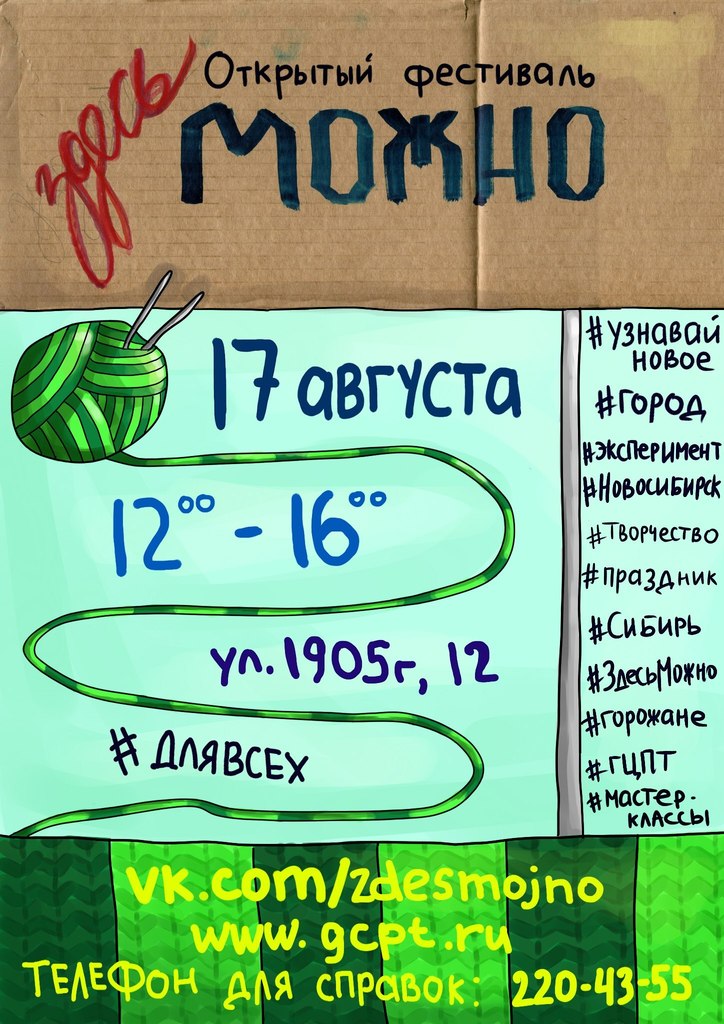 Открытый фестиваль
здесь
можно
17 августа
12⁰⁰ - 16⁰⁰
ул. 1905г, 12
#ДЛЯВСЕХ
#узнавай
новое
#город
#эксперимент
#Новосибирск
#Творчество
#праздник
#Сибирь
#ЗдесьМожно
#горожане
#ГЦПТ
#мастер-
классы
vk.com/zdesmojno
www.gcpt.ru
ТЕЛЕФОН ДЛЯ СПРАВОК: 220-43-55